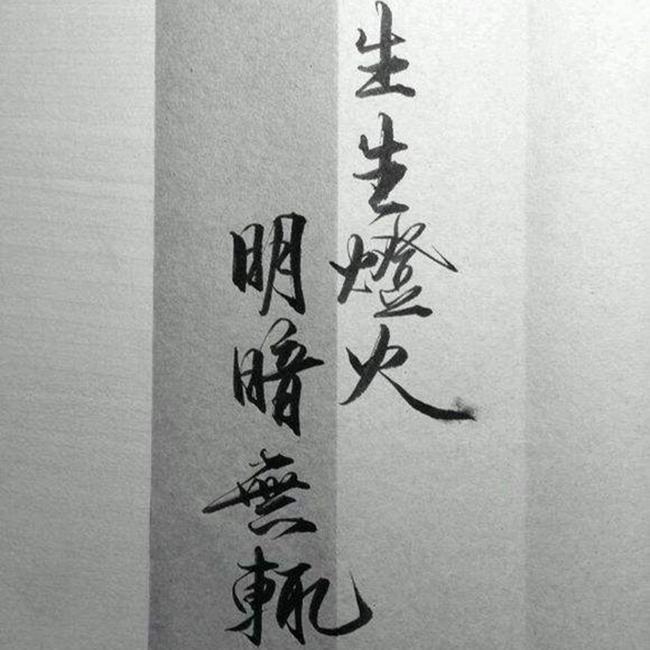 生生燈火
明暗無輒